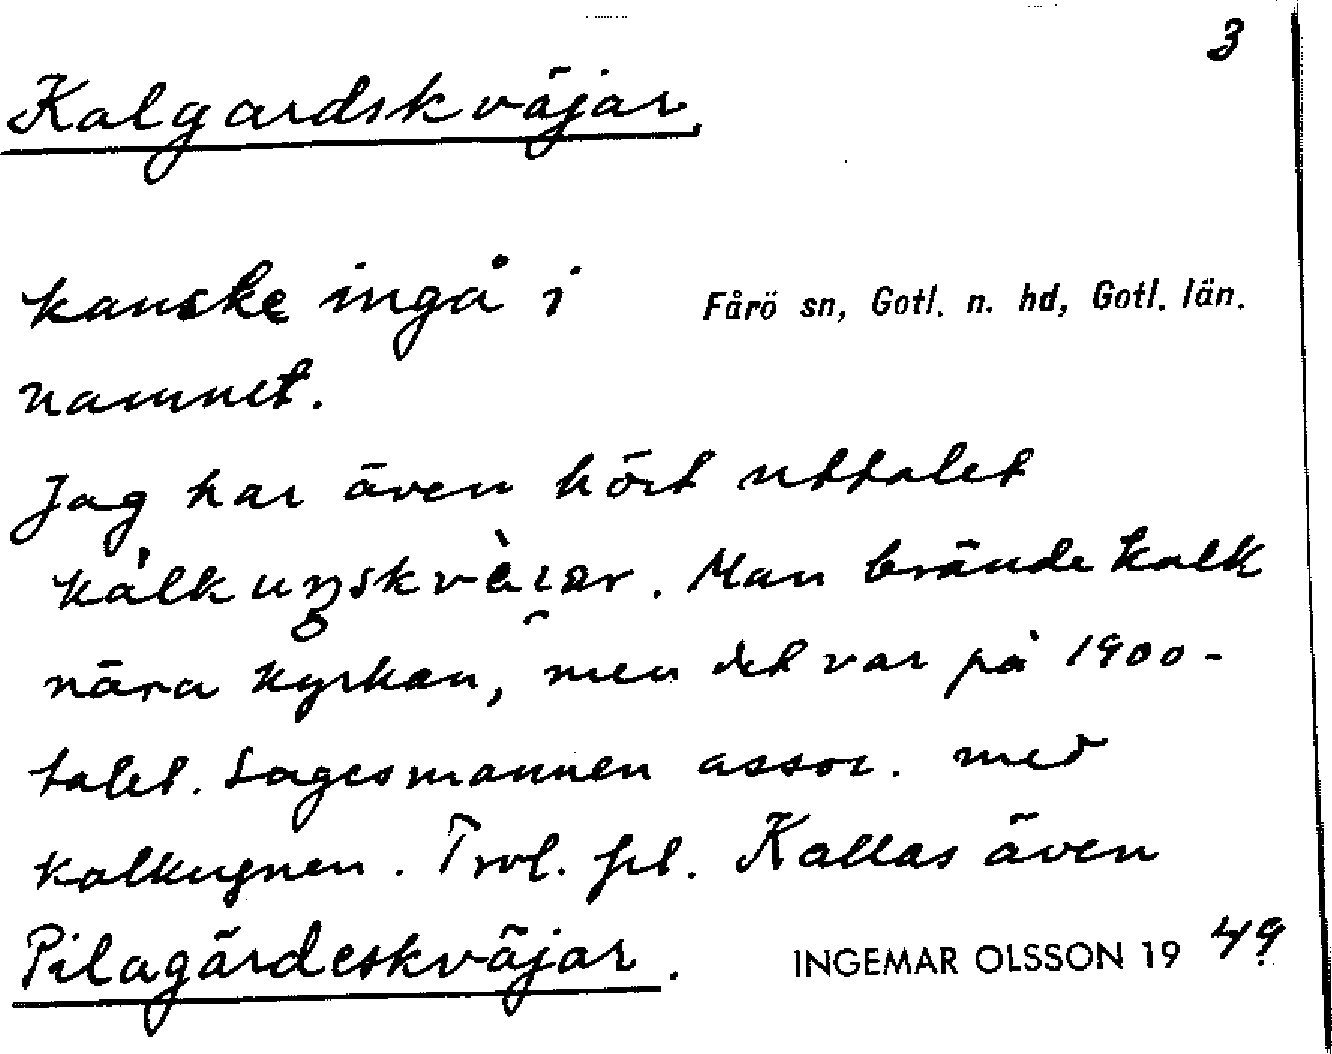 3
Kalgardskväjar
kanske ingå i
Fårö sn, Gotl. n. hd, Gotl. län.
namnet.
Jag har även hört uttalet
Man brände kalk
nära kyrkan, men det var på 1900-
talet. Sagesmannen assoc. med
kalkugnen. Trol. fel. Kallas även
Pilagärdeskväjar.
INGEMAR OLSSON 1949